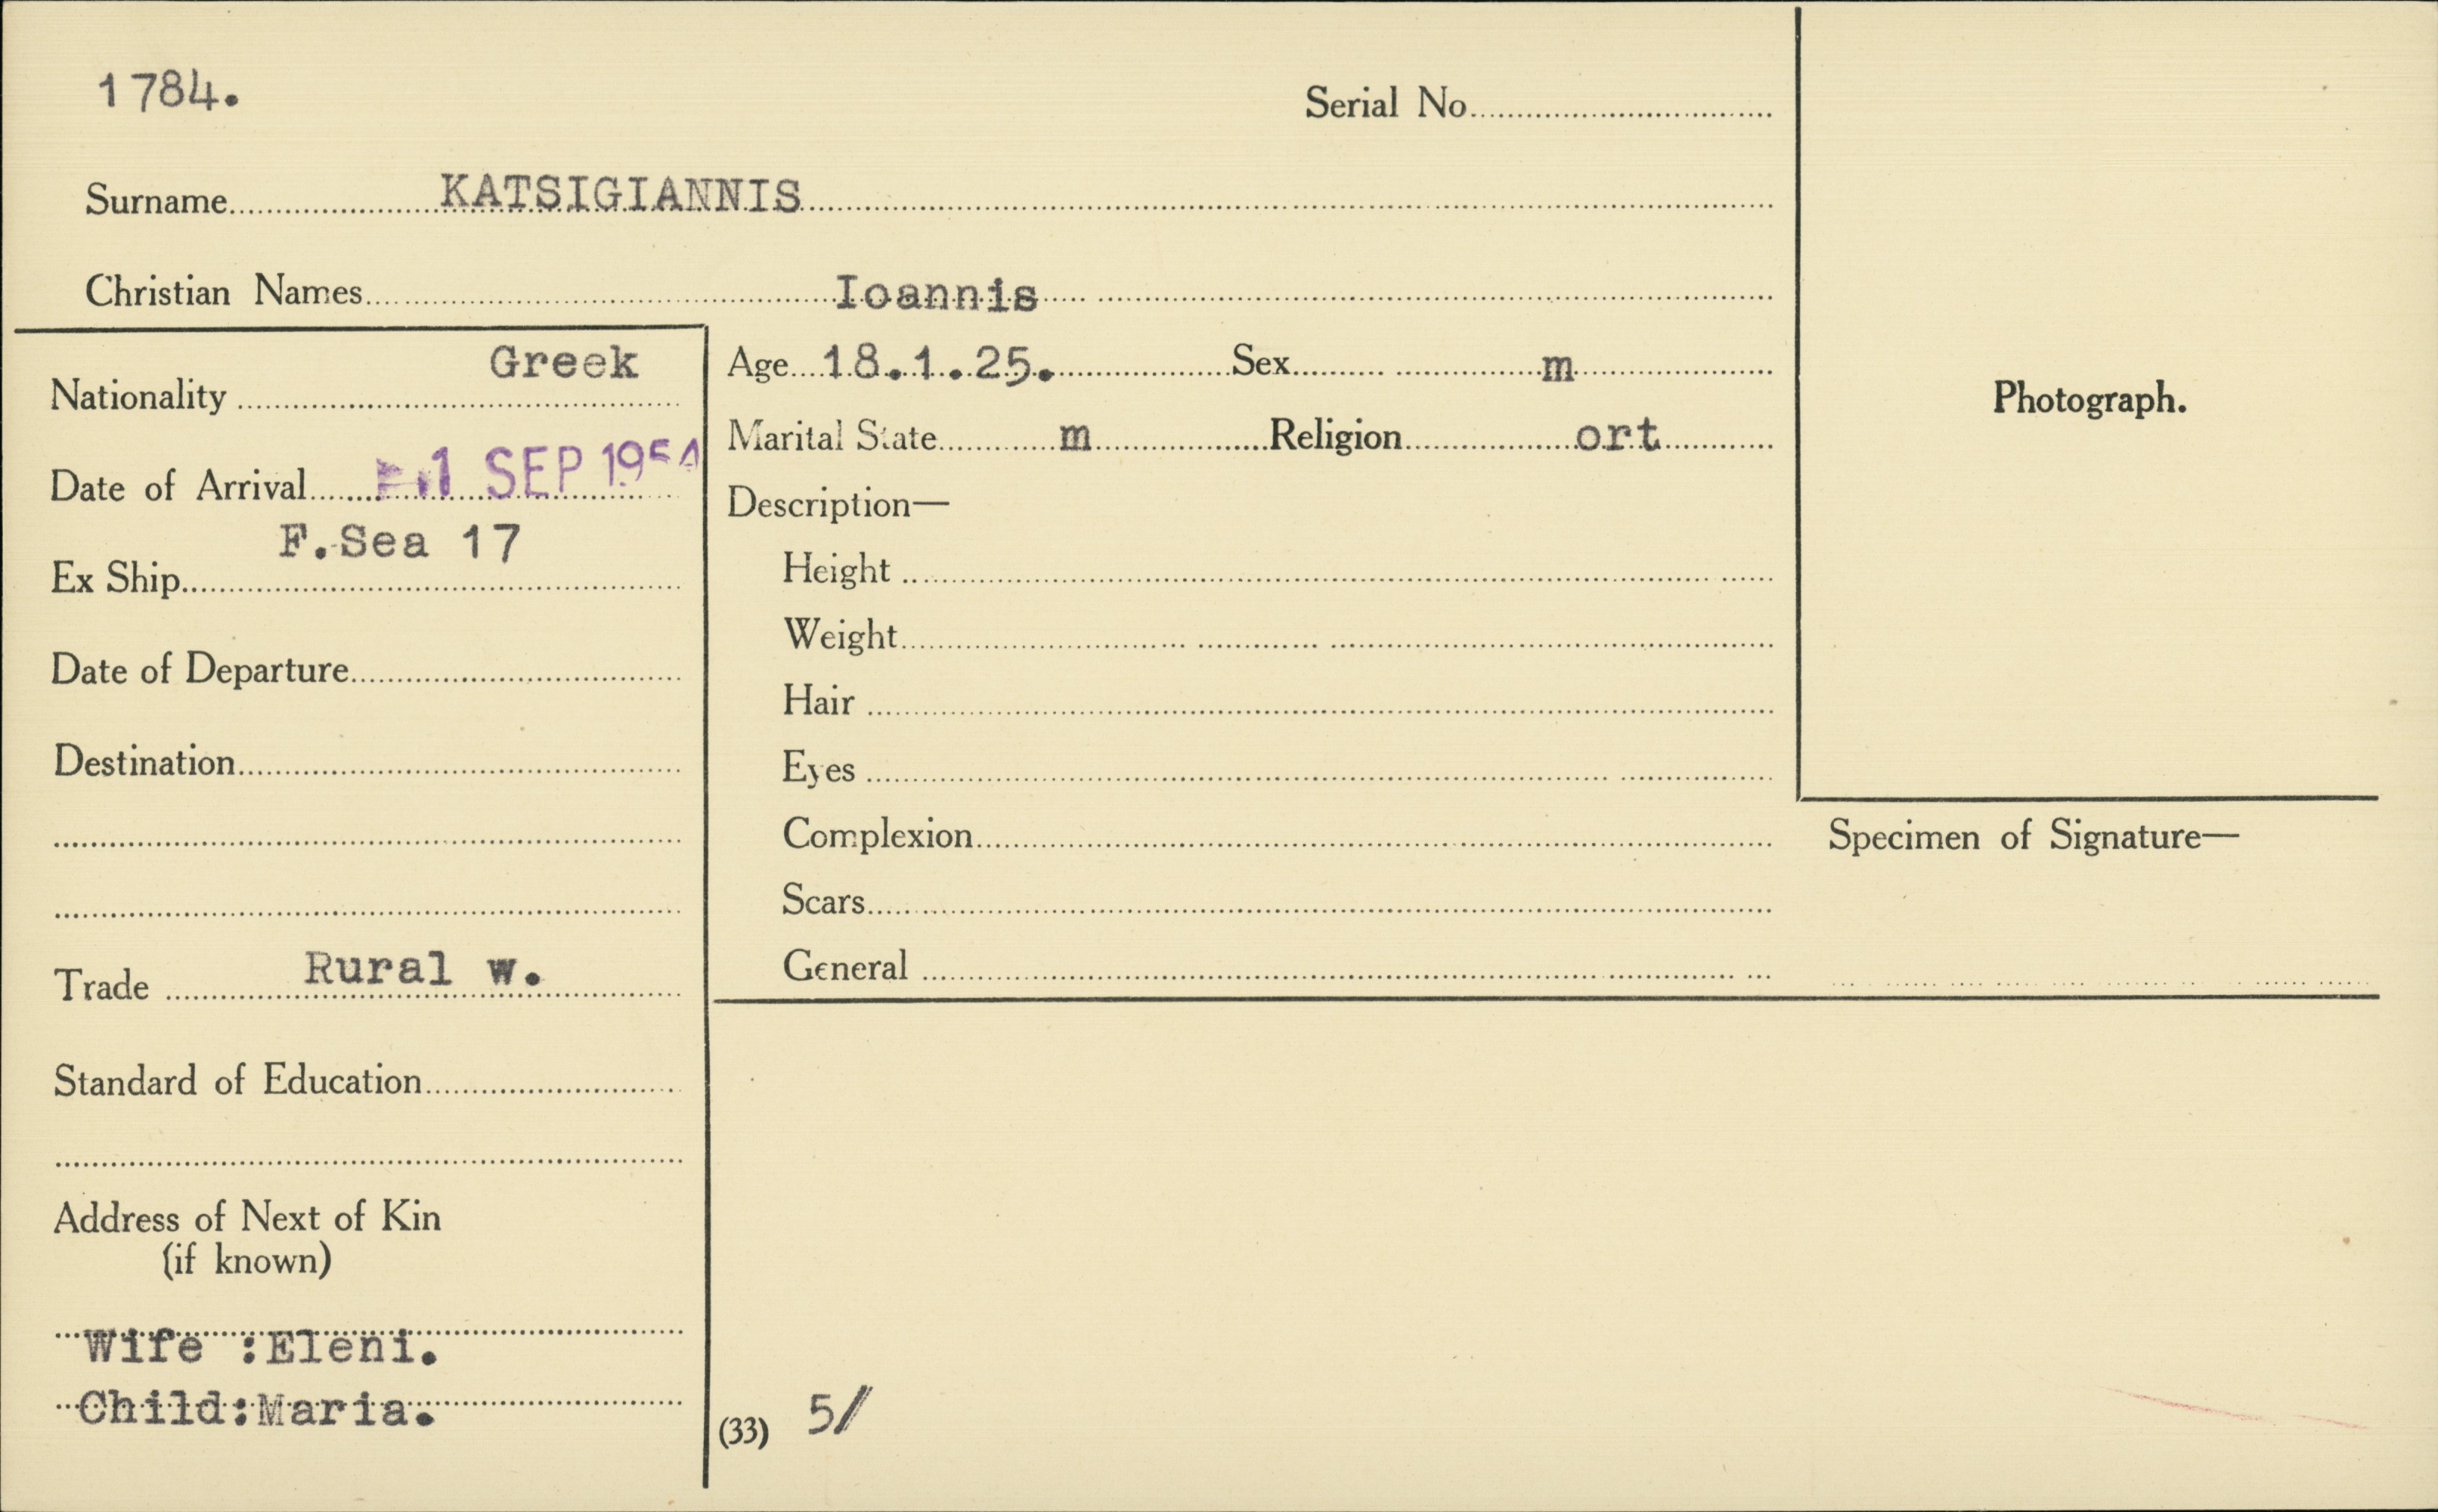 1784.
Serial No
Surname KATSIGIANNIS
Christian Names Ioannis
Nationality Greek
Date of Arrival 1 SEP 1954
Ex Ship F.Sea 17
Date of Departure
Destination
Trade Rural w.
Standard of Education
Address of Next of Kin
(if known)
Wife :Eleni.
Child:Maria.
Age 18.1.25. Sex m
Marital State m Religion ort
Description—
Height
Weight
Hair
Eyes
Complexion
Scars
General
(33) 5/
Photograph.
Specimen of Signature—